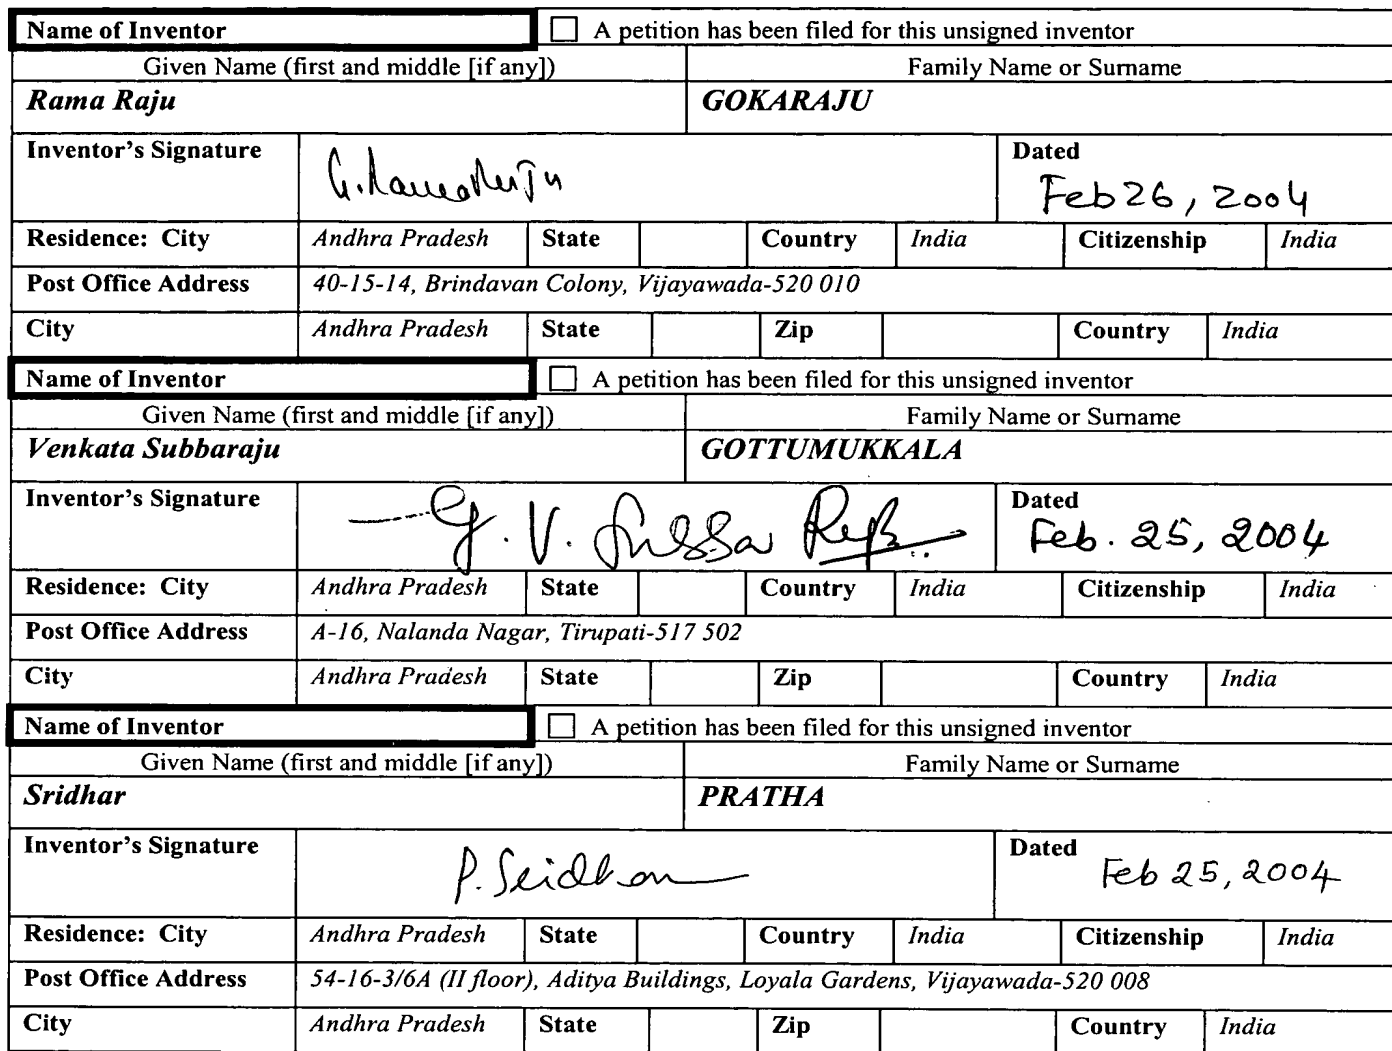 Name of Inventor ☐ A petition has been filed for this unsigned inventor
Given Name (first and middle [if any]) Family Name or Surname
Rama Raju GOKARAJU
Inventor's Signature G. RamaRaju Dated Feb 26, 2004
Residence: City Andhra Pradesh State Country India Citizenship India
Post Office Address 40-15-14, Brindavan Colony, Vijayawada-520 010
City Andhra Pradesh State Zip Country India
Name of Inventor ☐ A petition has been filed for this unsigned inventor
Given Name (first and middle [if any]) Family Name or Surname
Venkata Subbaraju GOTTUMUKKALA
Inventor's Signature G. V. Subba Raju Dated Feb. 25, 2004
Residence: City Andhra Pradesh State Country India Citizenship India
Post Office Address A-16, Nalanda Nagar, Tirupati-517 502
City Andhra Pradesh State Zip Country India
Name of Inventor ☐ A petition has been filed for this unsigned inventor
Given Name (first and middle [if any]) Family Name or Surname
Sridhar PRATHA
Inventor's Signature P. Sridhar Dated Feb 25, 2004
Residence: City Andhra Pradesh State Country India Citizenship India
Post Office Address 54-16-3/6A (II floor), Aditya Buildings, Loyala Gardens, Vijayawada-520 008
City Andhra Pradesh State Zip Country India